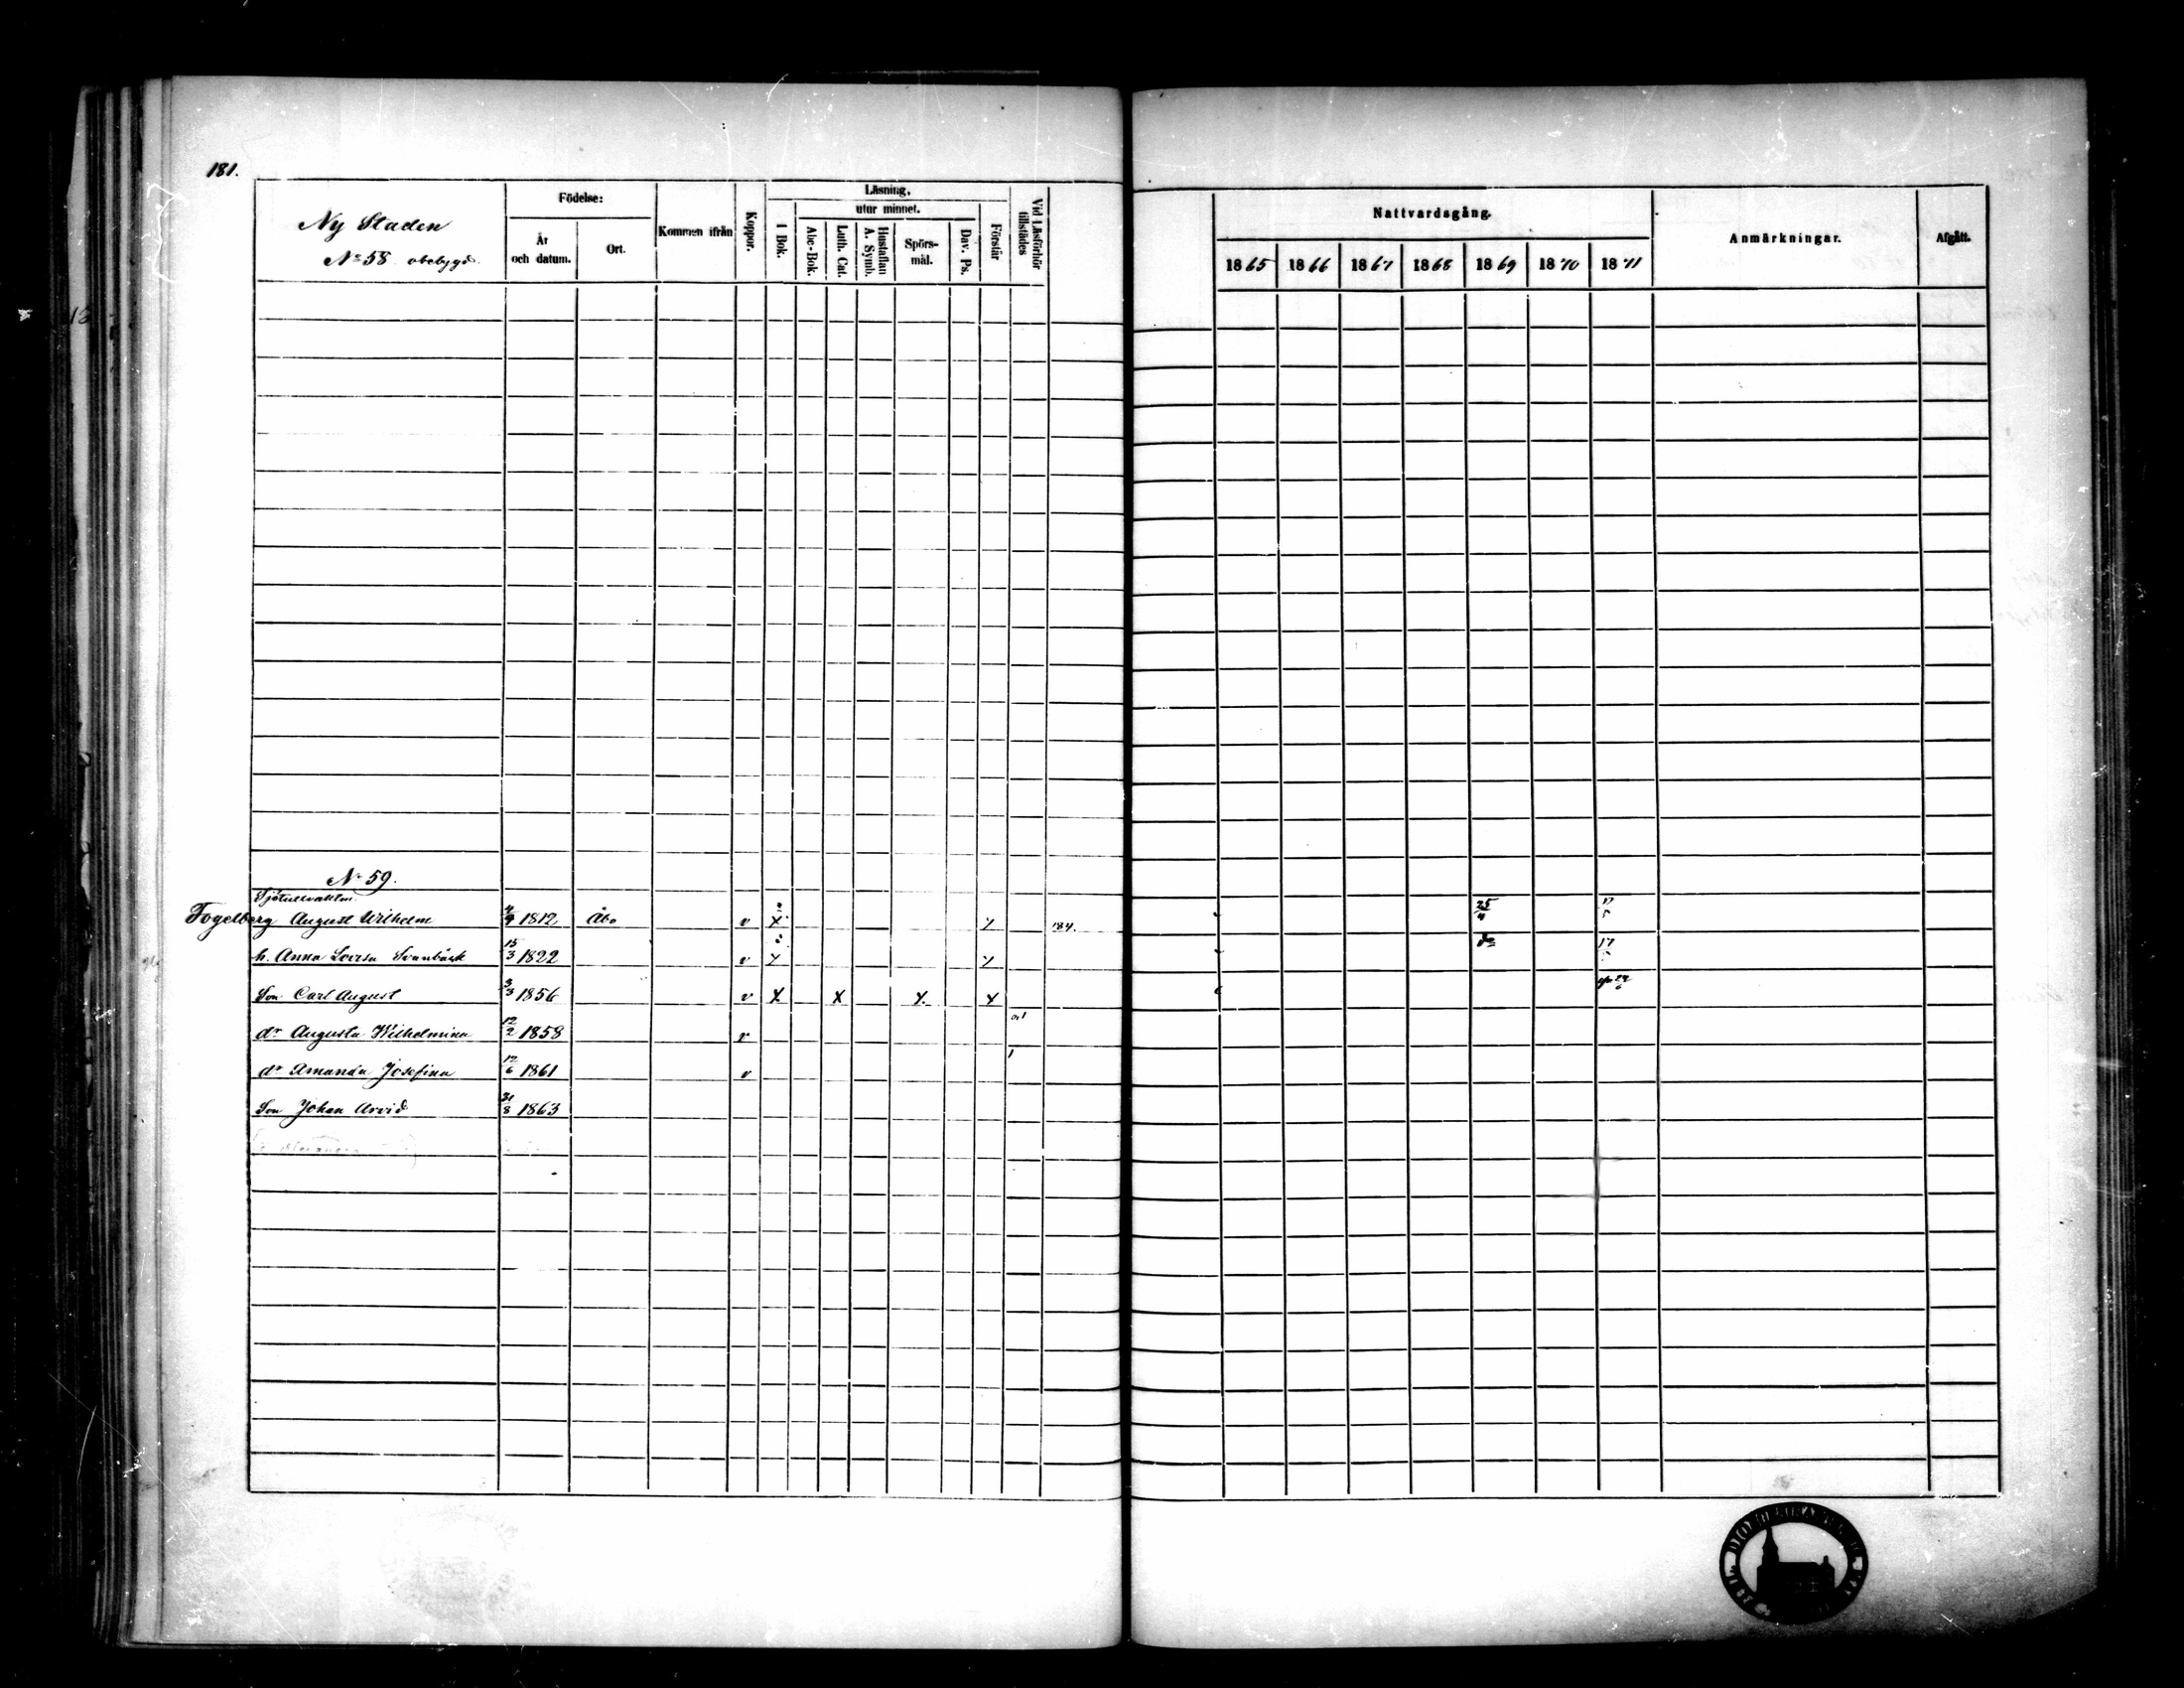 181.
Ny Staden
No 58 obebygd.
Födelse:
År och datum.
Ort.
Kommen ifrån
Koppor.
Läsning,
I Bok.
utur minnet.
Abc-Bok.
Luth. Cat.
Hustaflan A. Symb.
Spörs-mål.
Dav. Ps.
Förstår
Vid Läsförhör tillstädes
Nattvardsgång.
1865 1866 1867 1868 1869 1870 1871
Anmärkningar.
Afgått.
No 59.
Fogelberg August Wilhelm 1812 Åbo v x x 184. 25/4
h. Anna Lovisa Svanbäck 15/3 1822 v x x do 17
Son Carl August 3/3 1856 v x x x x
dr Augusta Wilhelmina 12/2 1858 v
dr Amanda Josefina 12/6 1861 v
Son Johan Arvid 31/8 1863